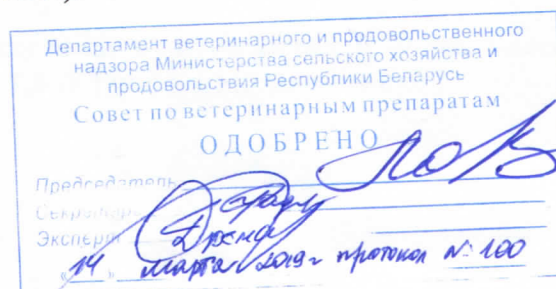 Департамент ветеринарного и продовольственного
надзора Министерства сельского хозяйства и
продовольствия Республики Беларусь
Совет по ветеринарным препаратам
ОДОБРЕНО
Председатель
Секретарь
Эксперт
«14» марта 2019 г протокол № 100